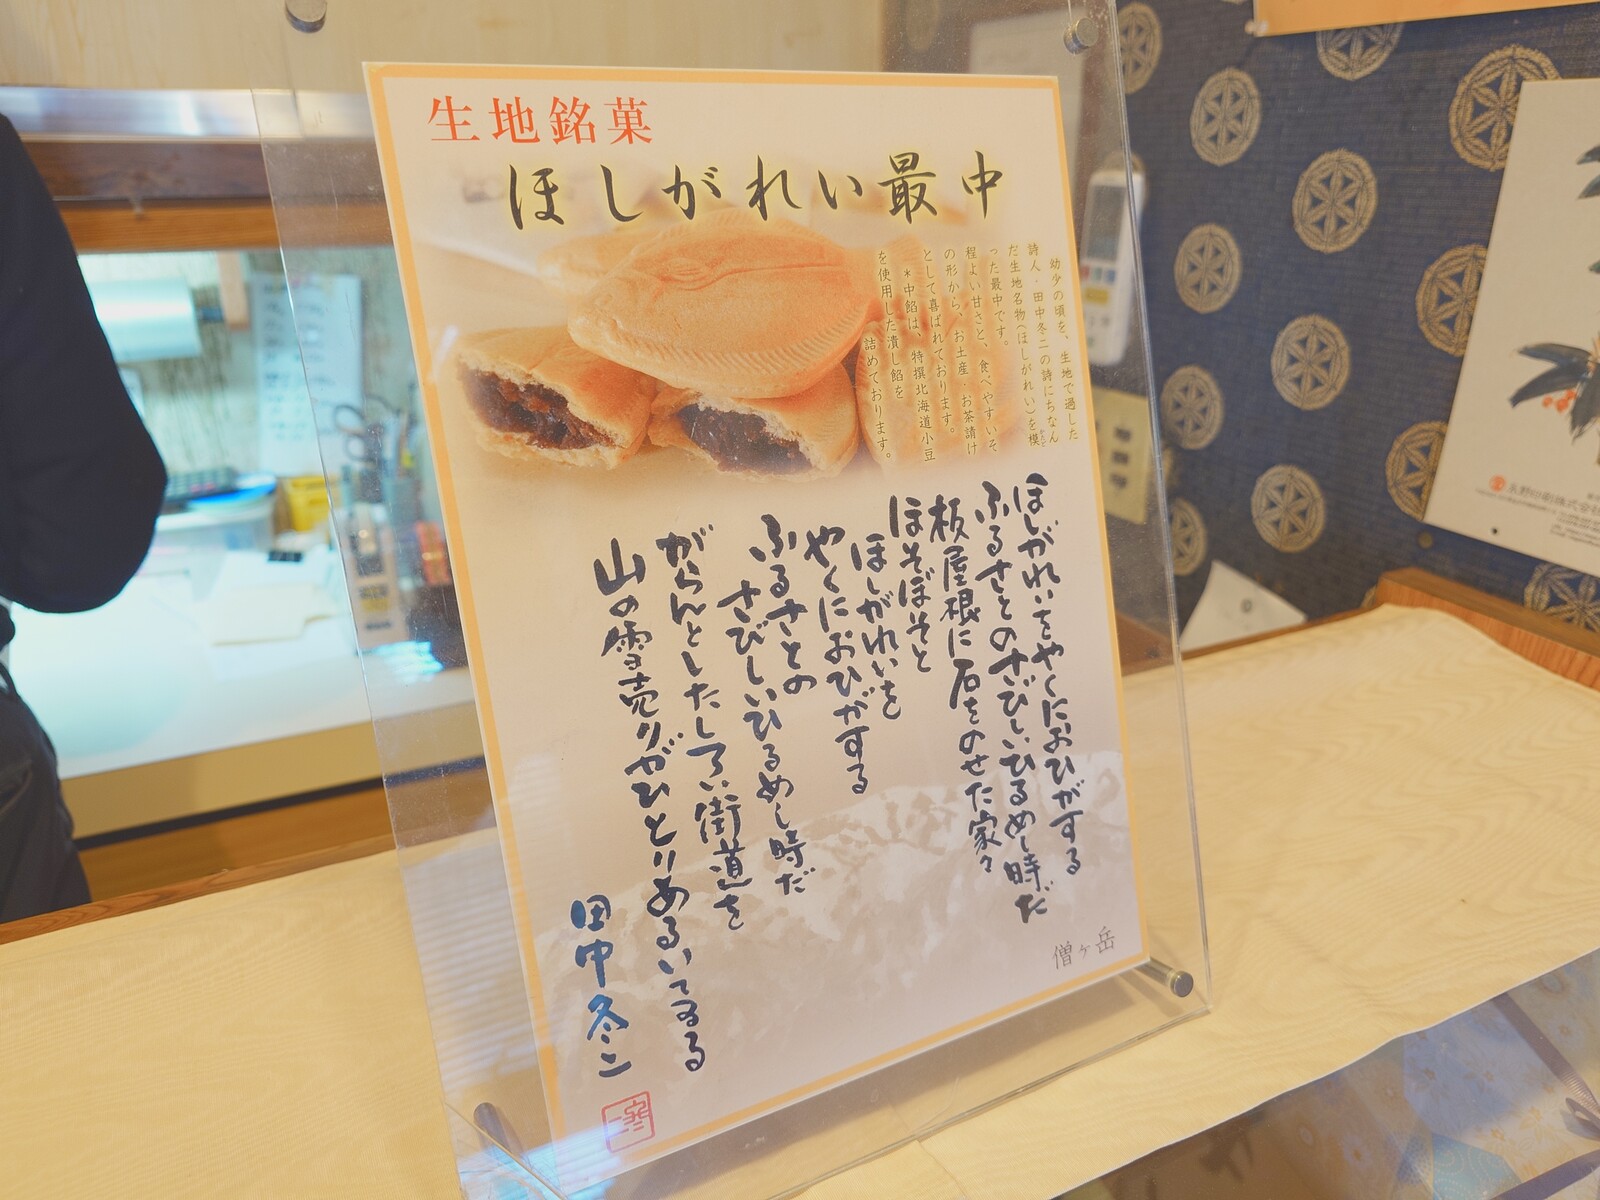 生地銘菓
ほしがれい最中
幼少の頃を、生地で過した
詩人・田中冬二の詩にちなん
だ生地名物(ほしがれい)を模
った最中です。
程よい甘さと、食べやすいそ
の形から、お土産・お茶請け
として喜ばれております。
*中餡は、特撰北海道小豆
を使用した潰し餡を
詰めております。
ほしがれいをやくにおひがする
ふるさとのさびしいひるめし時だ
板屋根に石をのせた家々
ほそぼそと
ほしがれいを
やくにおひがする
ふるさとの
さびしいひるめし時だ
がらんとしたしろい街道を
山の雪売りがひとりあるいてゐる
田中冬二
僧ヶ岳